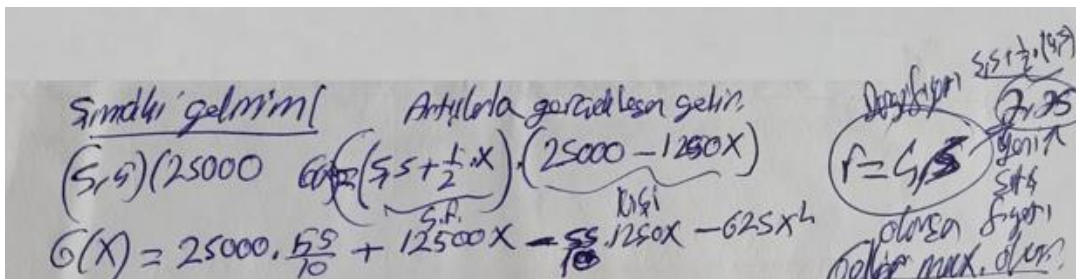 Şimdiki gelirim Artışlarla gerçekleşen gelir.
(5,5)(25000 G(x)=(5,5+1/2.x).(25000-1250x)
S.F. kişi
G(x) = 25000.55/10 + 12500x - 55/10.1250x - 625x²
5,5+1/2.(4,5)
7,75
r=4,5
olursa fiyatı
Gelir max. olur.